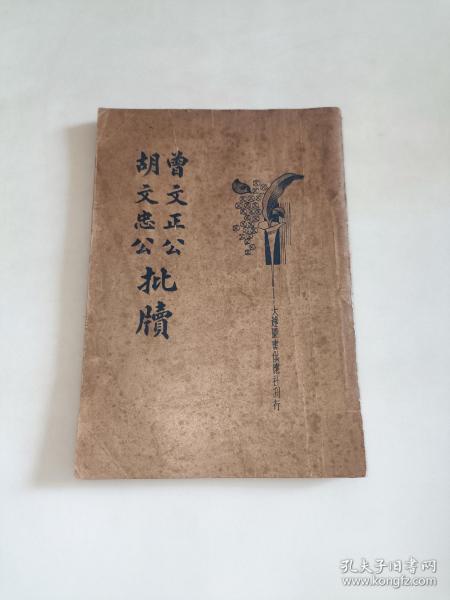 曾文正公
胡文忠公
批牍
大達圖書供應社刊行
孔夫子旧书网
www.kongfz.com